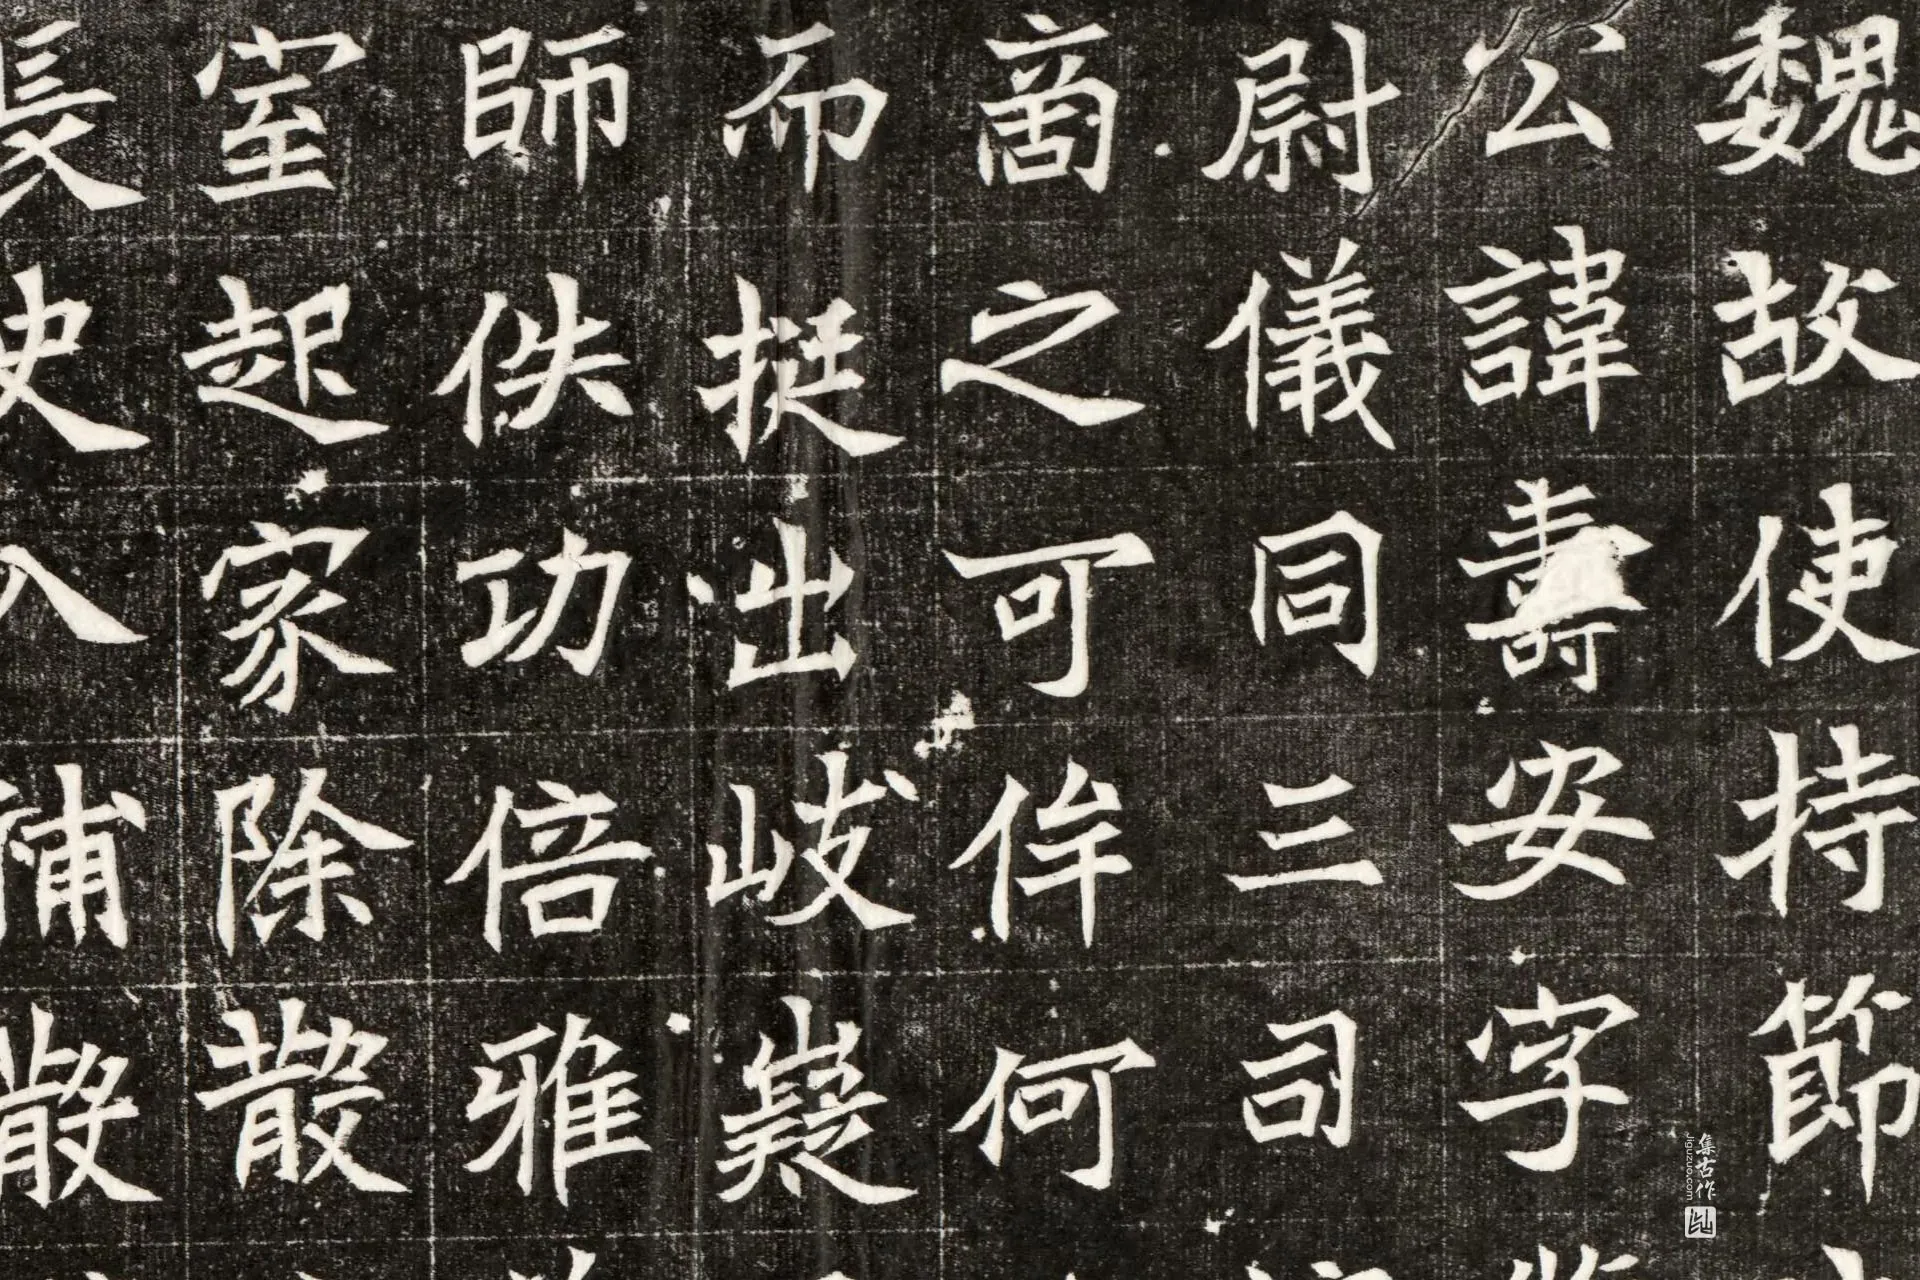 魏故使持節
公諱壽安字
尉儀同三司
啇之可侔何
而挺出岐嶷
師佚功倍雅
室起家除散
長史入補散
集古作
jiguzuo.com